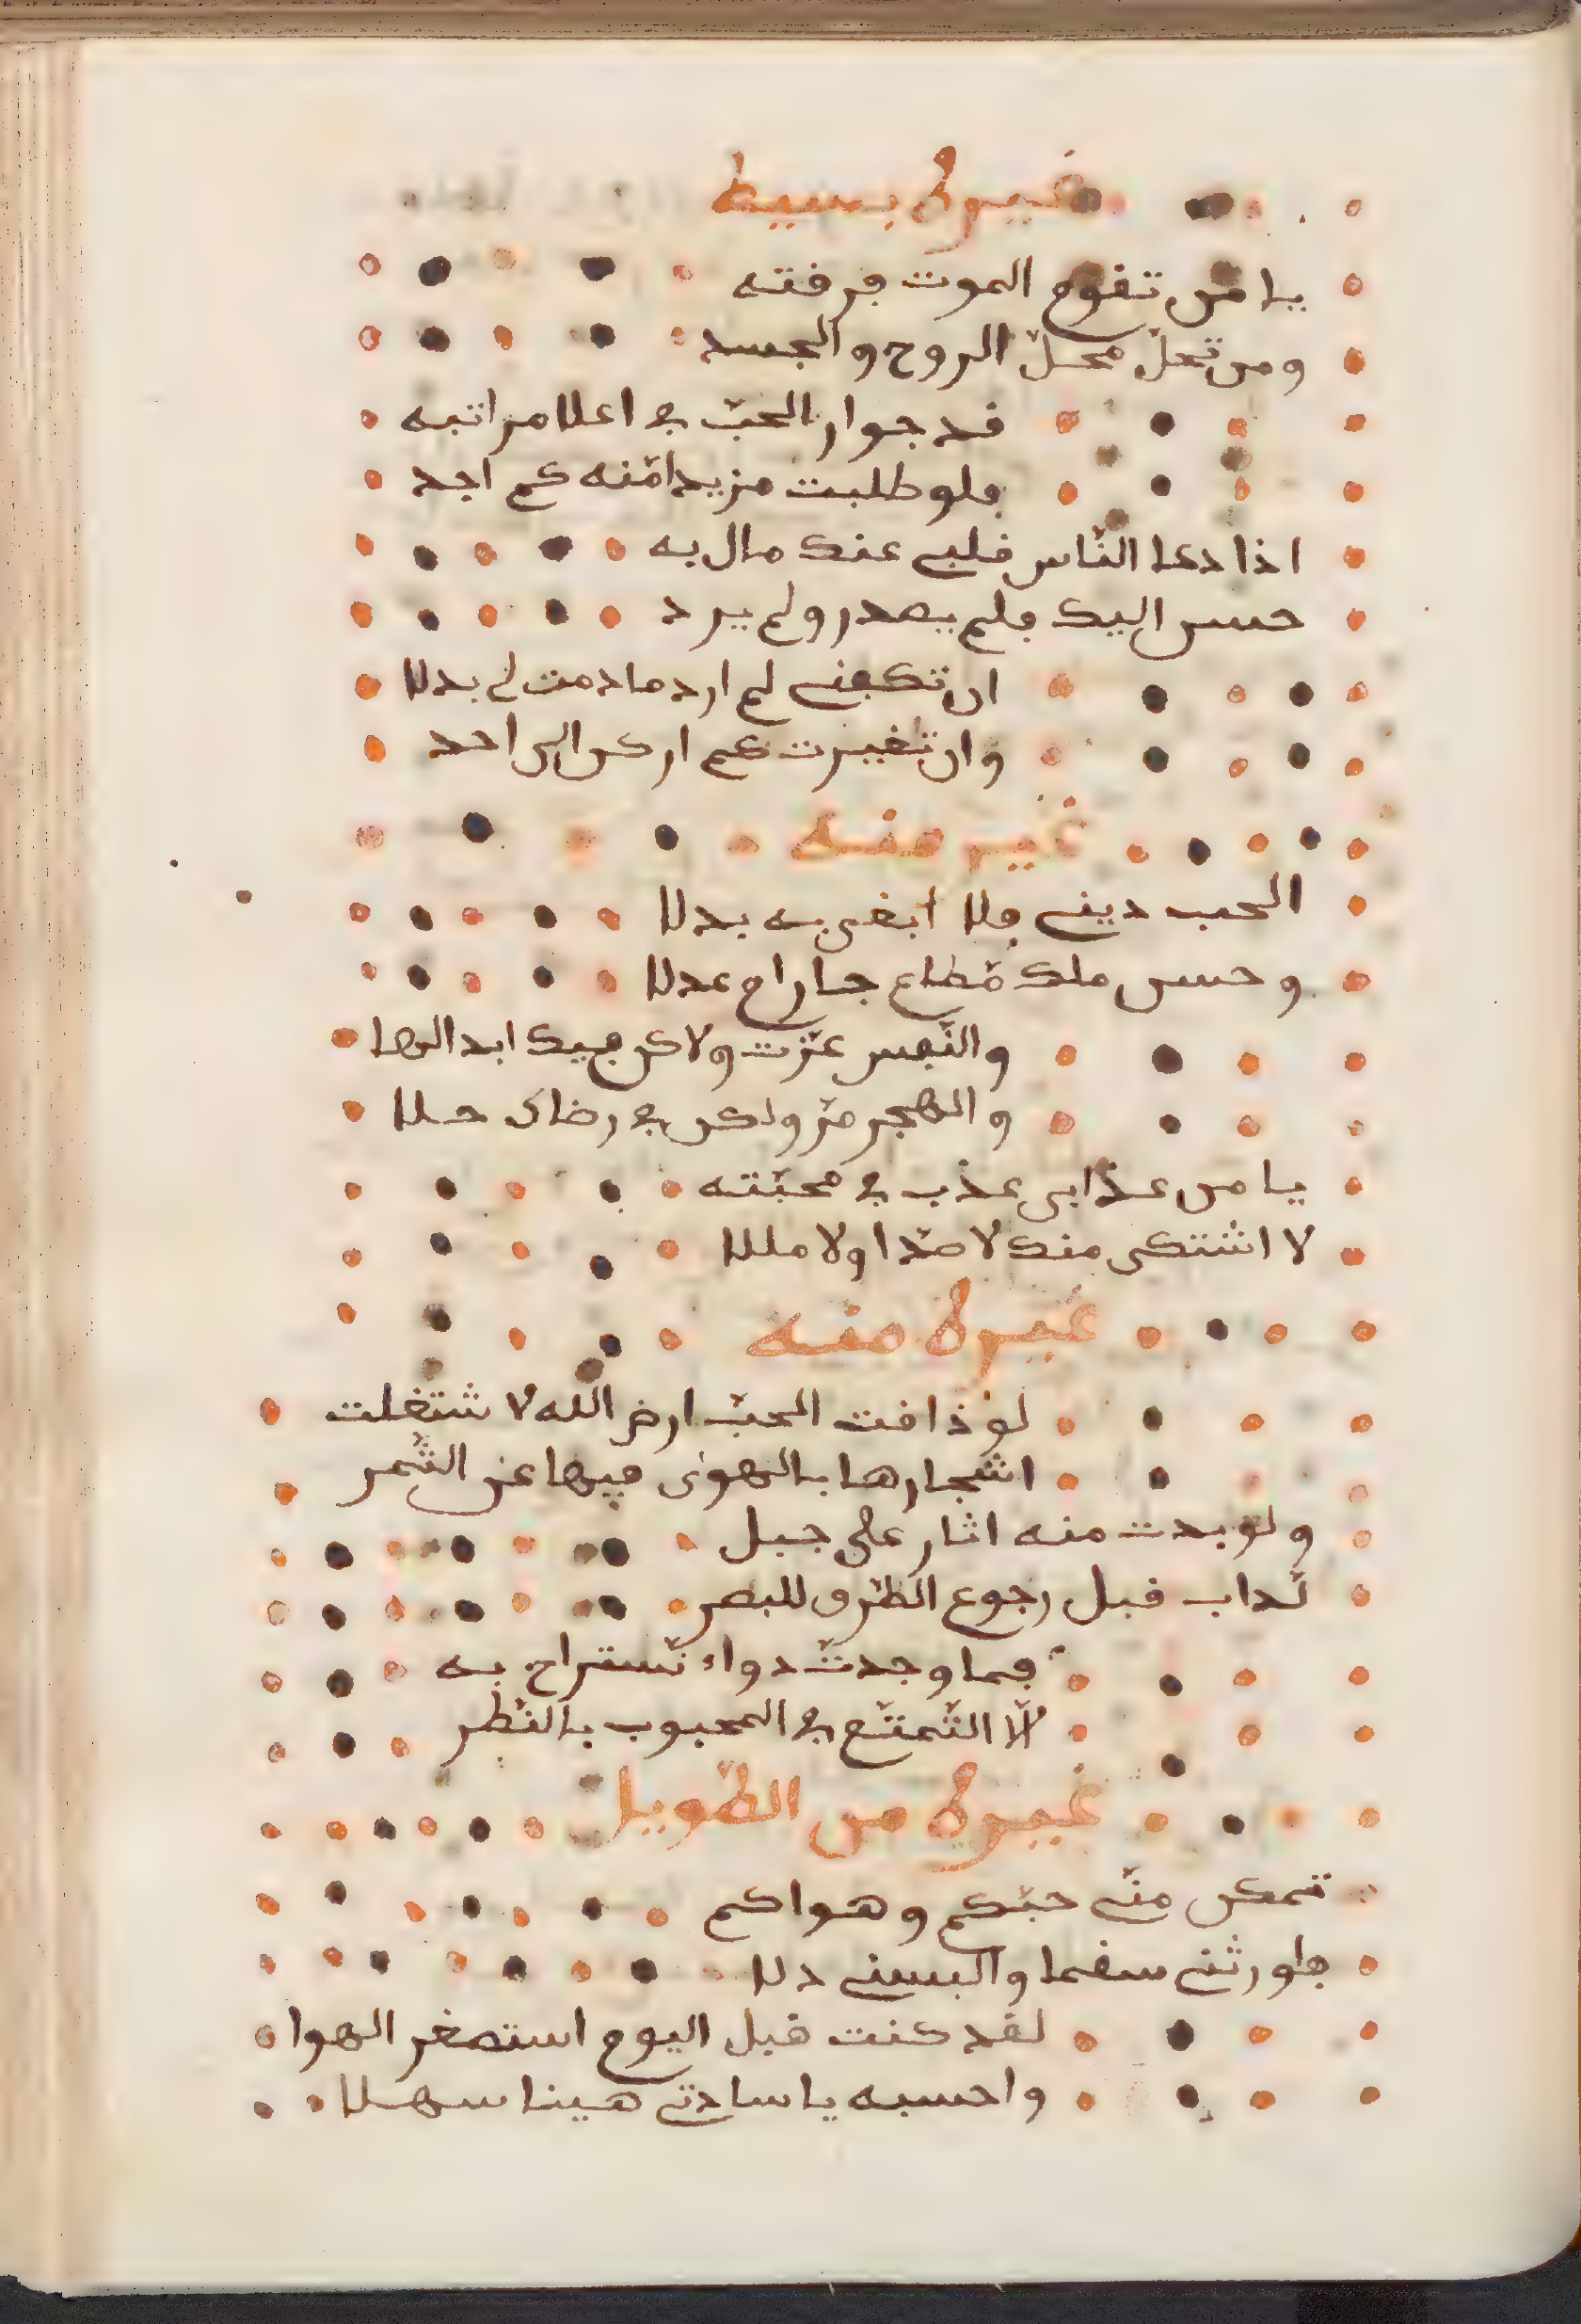 غيره بسيط
يا من تفوم الموت فرفته
ومن تحلّ محلّ الروح والجسد
قد جوار الحبّ في اعلا مراتبه
فلو طلبت مزيدا منه كم اجد
اذا دعا النّاس قلبي عنك مال به
حسن اليك فلم يصدر ولم يرد
ان تكفني لم ارد ما دمت لي بدلا
وان تغيرت لم اركن الى احد
غير منه
الحب ديني فلا ابغى به بدلا
وحسن ملك مطاع جار ام عدلا
والنّفس عزّت ولاكن فيك ابدالها
والهجر مرّ ولكن في رضاك حلا
يا من عذابى عذب في محبّته
لا اشتكى منك لا صدّا ولا مللا
غيره منه
لو ذاقت الحبّ ارض الله لاشتغلت
اشجارها بالهوى فيها عن الثّمر
ولو بدت منه اثار على جبل
لداب قبل رجوع الطّرف للبصر
فما وجدت دواء نستراح به
الّا التّمتّع في المحبوب بالنّظر
غيره من الطّويل
تمكن منّي حبّكم وهواكم
فاورثني سقما والبسني دلا
لقد كنت قبل اليوم استصغر الهوا
واحسبه يا سادتي هينا سهلا